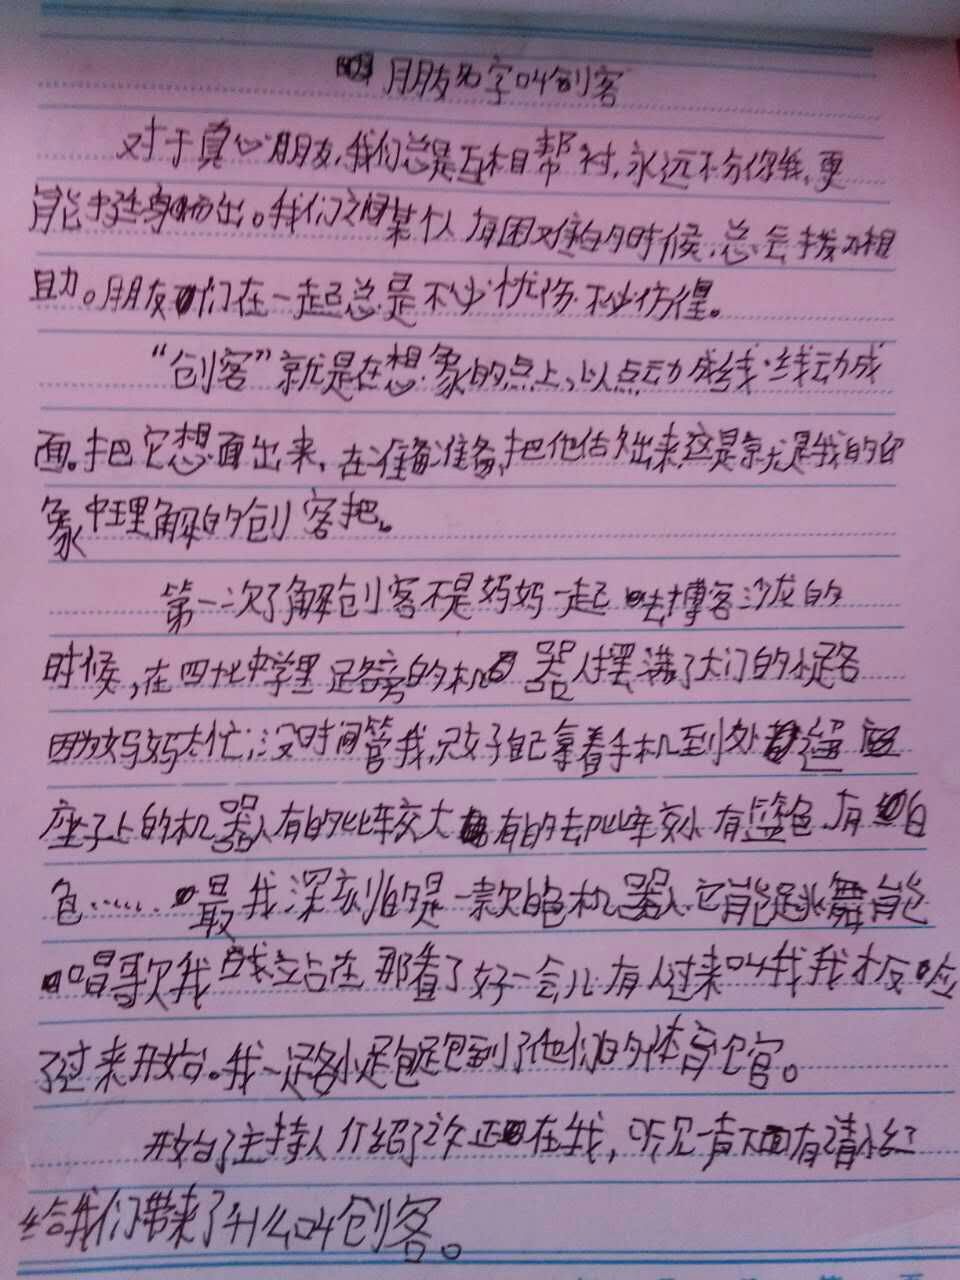 朋友名字叫创客
对于真心朋友,我们总是互相帮衬,永远不分你我,更
能挺身而出。我们之间某个人有困难的时候,总会拨刀相
助。朋友们在一起总是不少忧伤不少彷徨。
“创客”就是在想象的点上,以点动成线,线动成
面。把它想画出来,在准备准备,把他估出来这是就是我的印
象中理解的创客把。
第一次了解创客不是妈妈一起去博客沙龙的
时候,在四十七中学里路旁的机器人摆满了大门的小路
因为妈妈太忙,没时间管我,只好自己拿着手机到处逛
座子上的机器人有的比较大有的去比较小有篮色有白
色……最我深刻的是一款白色机器人它能跳舞能
唱歌我站在那看了好一会儿有人过来叫我我才反应
了过来开始。我一路小跑跑到了他们的体育馆。
开始了主持人介绍了许在我,听见音下面有请小红
给我们带来了什么叫创客。